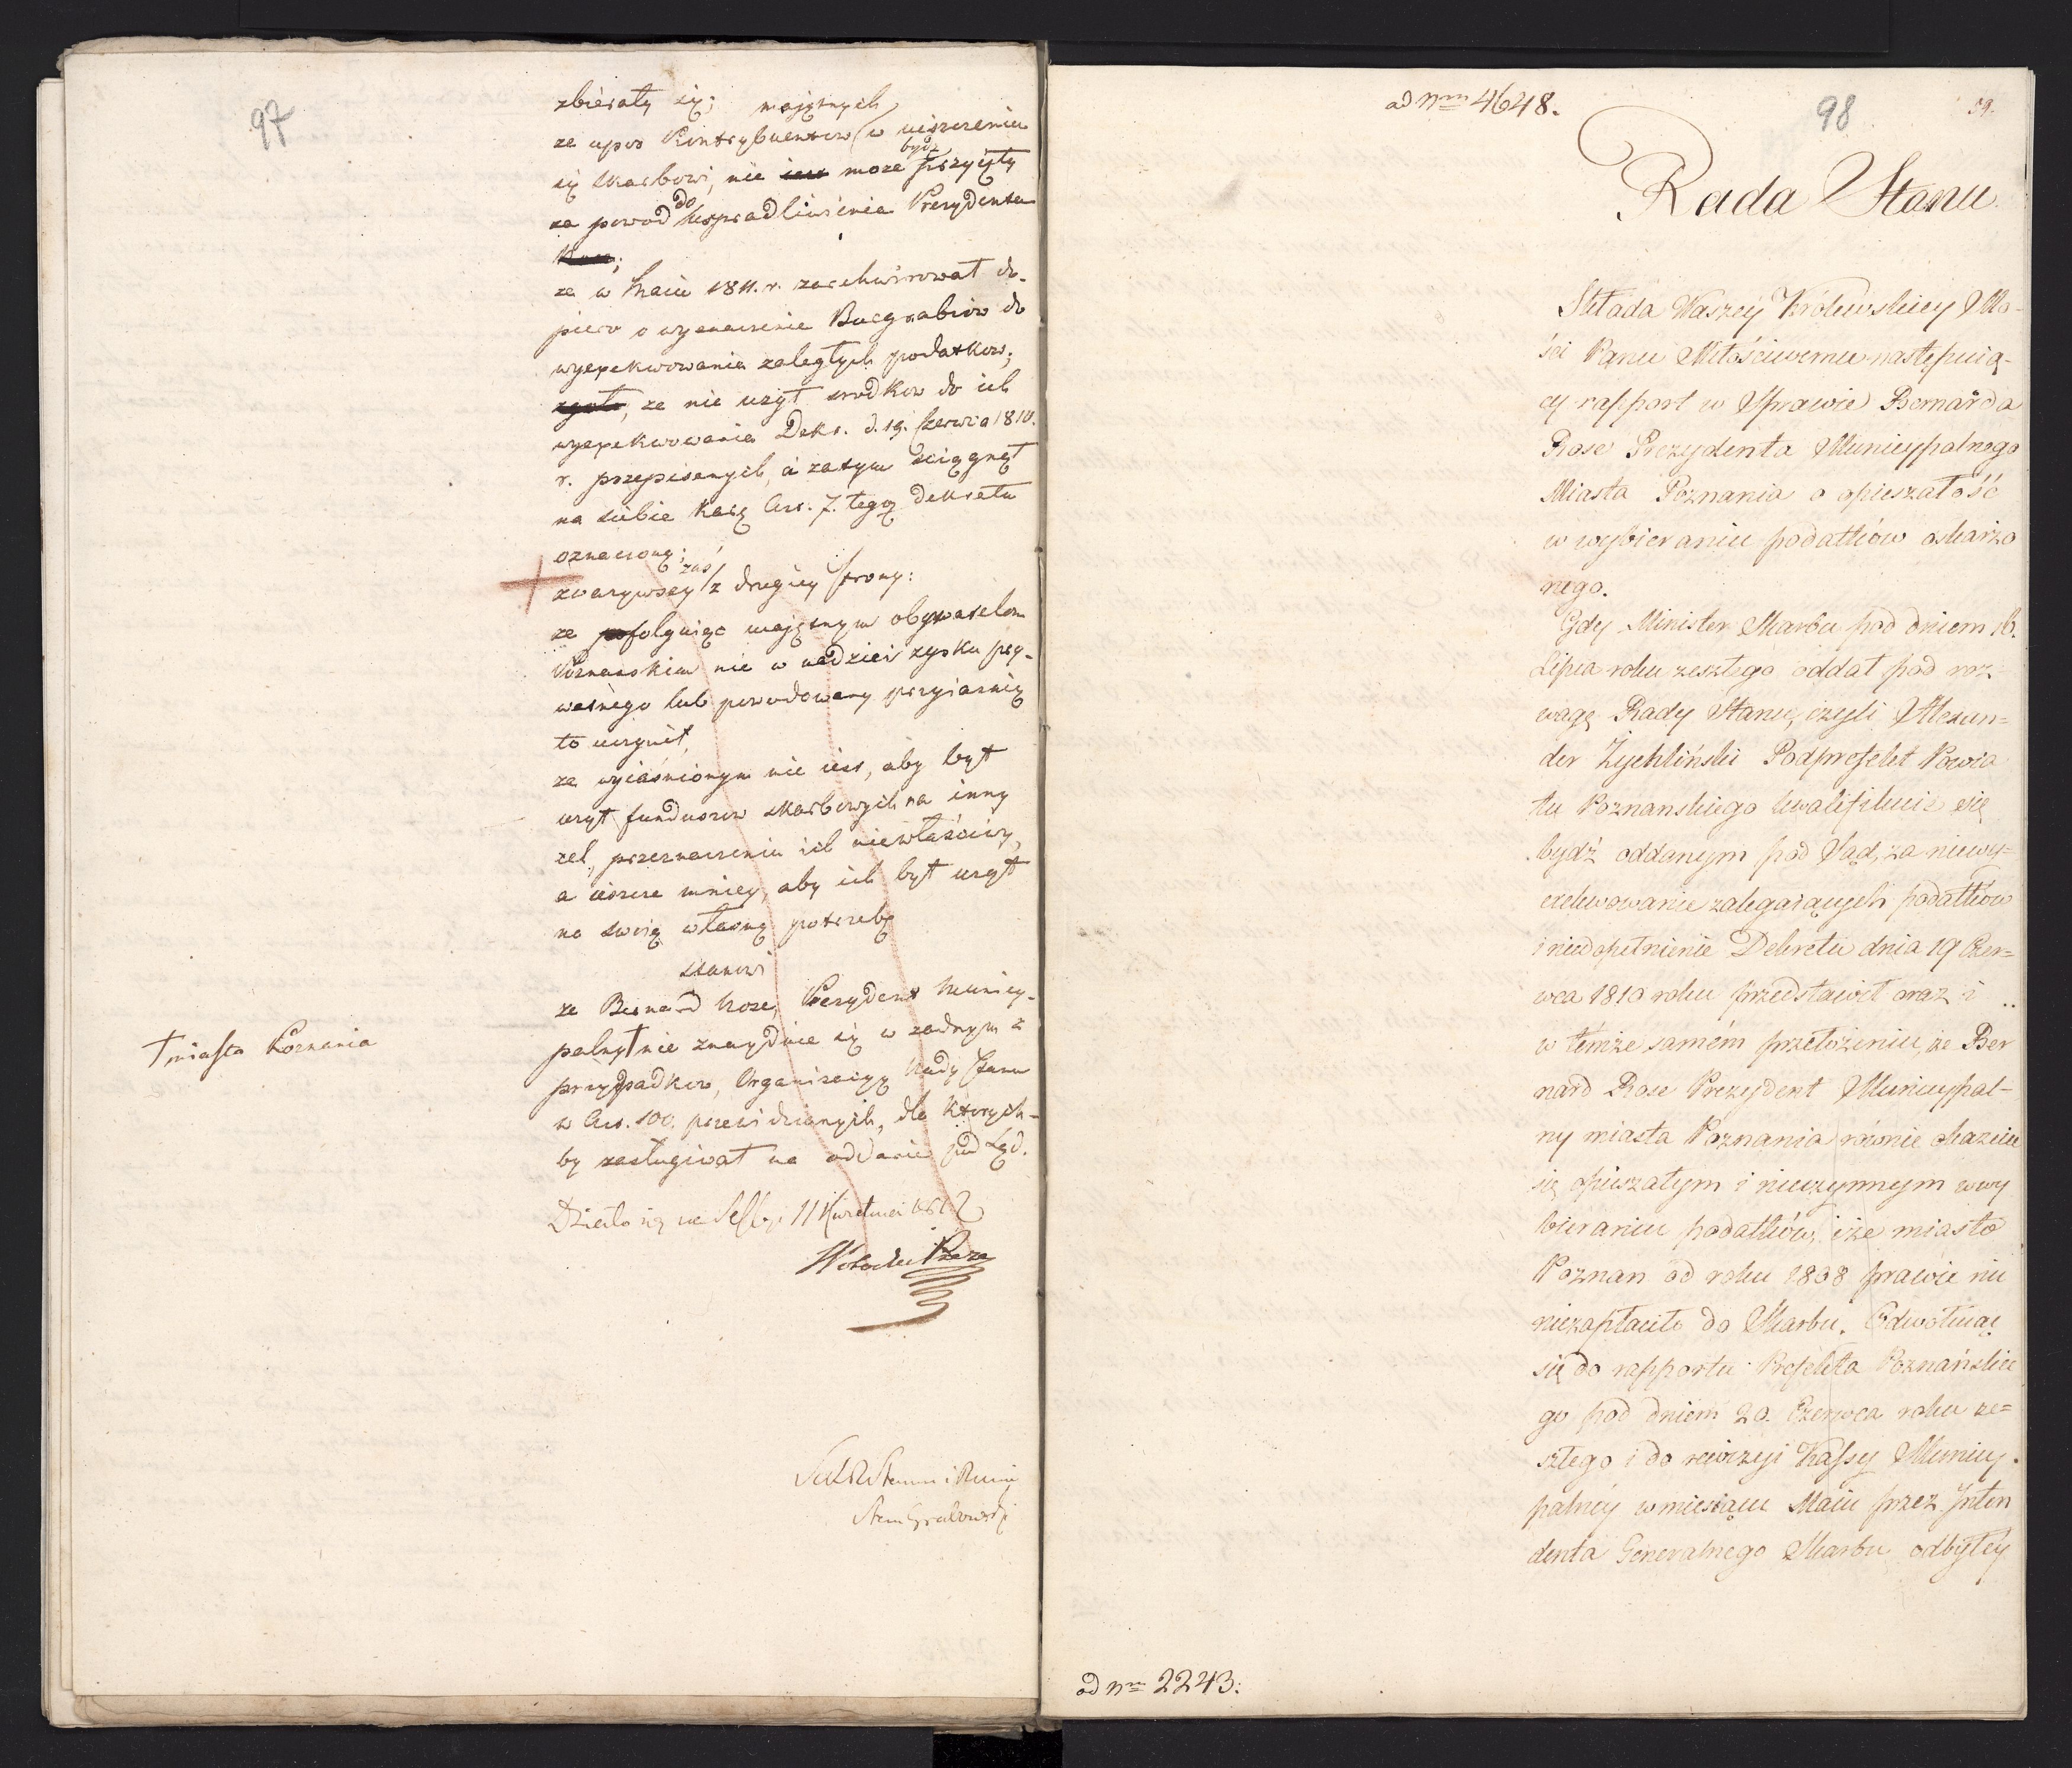 97
zbierały się;
że upor Kontrybuentow majętnych w uiszczeniu
się skarbowi, nie iest może bydź przyięty
za powod do usprawiedliwienia Prezydenta
że w Maiu 1811. r. zarekwirował do-
piero o wyznaczenie Burgrabiów do
wyexekwowania zaległych podatkow;
zgoła, że nie użył srodkow do ich
wyexekwowania Dekr. d. 19. Czerwca 1810.
r. przepisanych, a zatym sciągnął
na siebie karę Art. 7. tegoż dekretu
oznaczoną;
zważywszy zaś z drugiey strony:
że pofolguiąc majętnym obywatelom
Poznanskim nie w nadziei zysku pry-
watnego lub powodowany przyiaznią
to uczynił,
że wyiaśnionym nie iest, aby był
użył funduszow skarbowych na inny
cel, przeznaczeniu ich niewłaściwy,
a ieszcze mniey, aby ich był użył
na swoię własną potrzebę
stanowi
że Bernard Rose, Prezydent Municy-
palny † nie znayduie się w żadnym z
przypadkow, Organizacyą Rady Stanu
w Art. 100. przewidzianych, dla ktorych-
by zasługiwał na oddanie pod Sąd.
† miasta Poznania
Działo się na Sessyi 11 Kwietnia 1812
98
59.
ad Nrm 4648.
Rada Stanu
Składa Waszéy Królewskiey Mo-
ści Panu Miłościwemu następuią-
cy rapport w Sprawie Bernarda
Rose Prezydenta Municypalnego
Miasta Poznania o opieszałość
w wybieraniu podatków oskarżo
nego.
Gdy Minister Skarbu pod dniem 16.
Lipca roku zeszłego oddał pod roz
wagę Rady Stanu, czyli Alexan=
der Żychliński Podprefekt Powia
tu Poznanskiego kwalifikuie się
bydź oddanym pod Sąd, za niewy=
exekwowanie zalegaiących podatków
i niedopełnienie Dekretu dnia 19 Czer=
wca 1810 roku przedstawił oraz i
w temże samém przełożeniu, że Ber
nard Rose Prezydent Municypal-
ny miasta Poznania równie okazuie
się opieszałym i nieczynnym w wy
bieraniu podatków, i że miasto
Poznan od roku 1808 prawie nic
niezapłaciło do Skarbu. Odwołuiąc
się do rapportu Prefekta Poznańskie
go pod dniem 20. Czerwca roku ze=
szłego i do rewizyi Kassy Municy-
palnéy w miesiącu Maiu przez Inten
denta Generalnego Skarbu odbytéy
ad Nrm 2243.